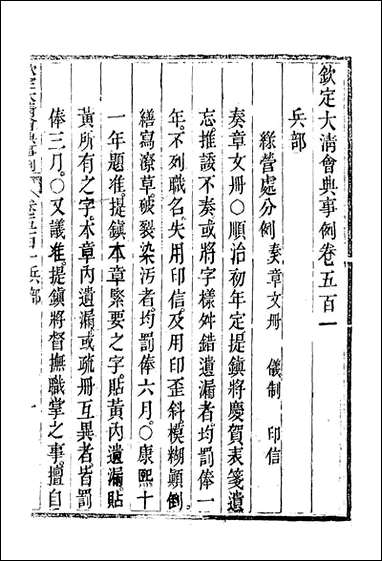 欽定大清會典事例卷五百一
兵部
綠營處分例 奏章文冊 儀制 印信
奏章文冊○順治初年定提鎭將慶賀表箋遺
忘推諉不奏或將字樣舛錯遺漏者均罰俸一
年不列職名失用印信及用印歪斜模糊顚倒
繕寫潦草破裂染汚者均罰俸六月○康熙十
一年題准提鎭本章緊要之字貼黃內遺漏貼
黃所有之字本章內遺漏或疏冊互異者皆罰
俸三月○又議准提鎭將督撫職掌之事擅自
欽定大清會典事例 卷五百一 兵部 一